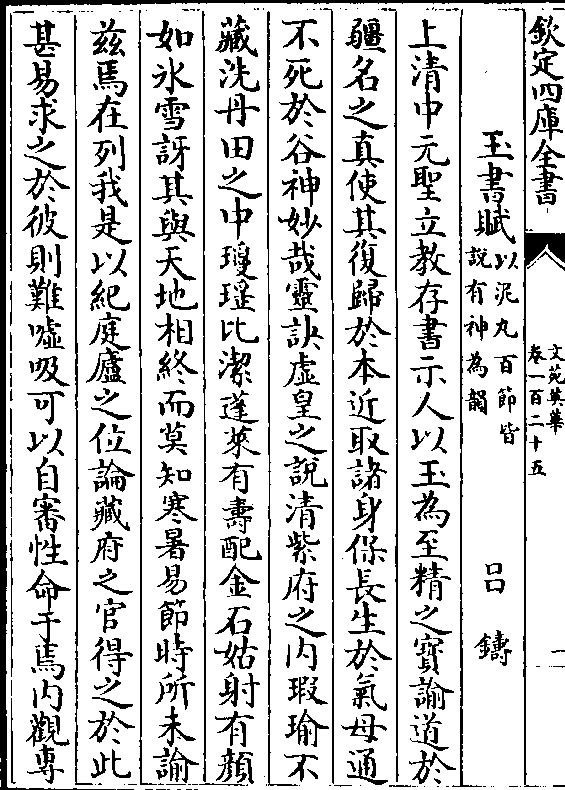 欽定四庫全書
文苑英華
卷一百二十五
一
玉書賦以泥丸百節皆
說有神為韻
吕鑄
上清中元聖立教存書示人以玉為至精之寶諭道於
疆名之真使其復歸於本近取諸身保長生於氣母通
不死於谷神妙哉靈訣虚皇之說清紫府之内瑕瑜不
藏洗丹田之中瓊瑶比潔蓬萊有壽配金石姑射有顔
如氷雪訝其與天地相終而莫知寒暑易節時所未諭
兹焉在列我是以紀庭廬之位論藏府之官得之於此
甚易求之於彼則難嘘吸可以自審性命于焉内觀專